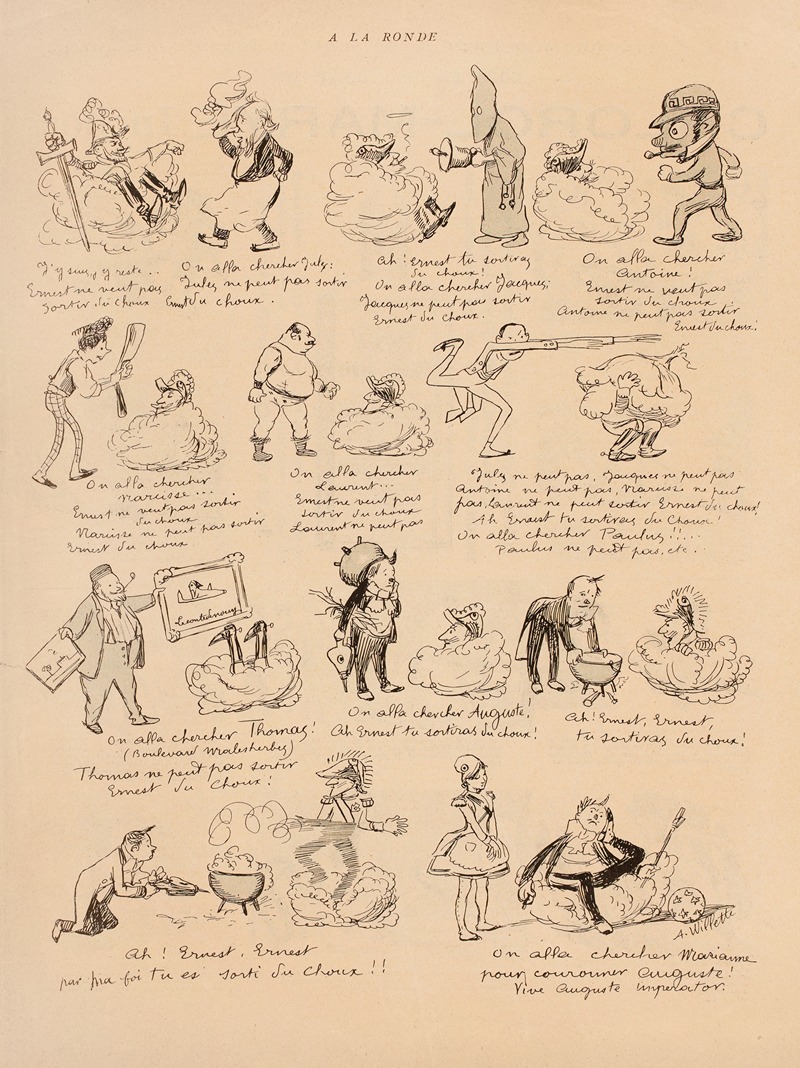 A LA RONDE
J'y suis, j'y reste...
Ernest ne veut pas
Sortir du choux
On alla chercher Jules:
Jules ne peut pas sortir
Ernest du choux.
Ah! Ernest tu sortiras
du choux!
On alla chercher Jacques;
Jacques ne peut pas sortir
Ernest du choux.
On alla chercher
Antoine!
Ernest ne veut pas
sortir du choux
Antoine ne peut pas sortir
Ernest du choux!
On alla chercher
Narcisse...
Ernest ne veut pas sortir
du choux
Narcisse ne peut pas sortir
Ernest du choux
On alla chercher
Laurent...
Ernest ne veut pas
sortir du choux
Laurent ne peut pas
Jules ne peut pas, Jacques ne peut pas
Antoine ne peut pas, Narcisse ne peut
pas, Laurent ne peut sortir Ernest du choux!
Ah Ernest tu sortiras du Choux!
On alla chercher Paulus!!...
Paulus ne peut pas, etc..
Lecomtedunouy
On alla chercher Thomas!
(Boulevard Malesherbes)
Thomas ne peut pas sortir
Ernest du Choux!
On alla chercher Auguste!
Ah Ernest tu sortiras du choux!
Ah! Ernest, Ernest,
tu sortiras du choux!
Ah! Ernest, Ernest
par ma foi tu es sorti du choux!!
A. Willette
On alla chercher Marianne
pour couronner Auguste!
Vive Auguste imperator.